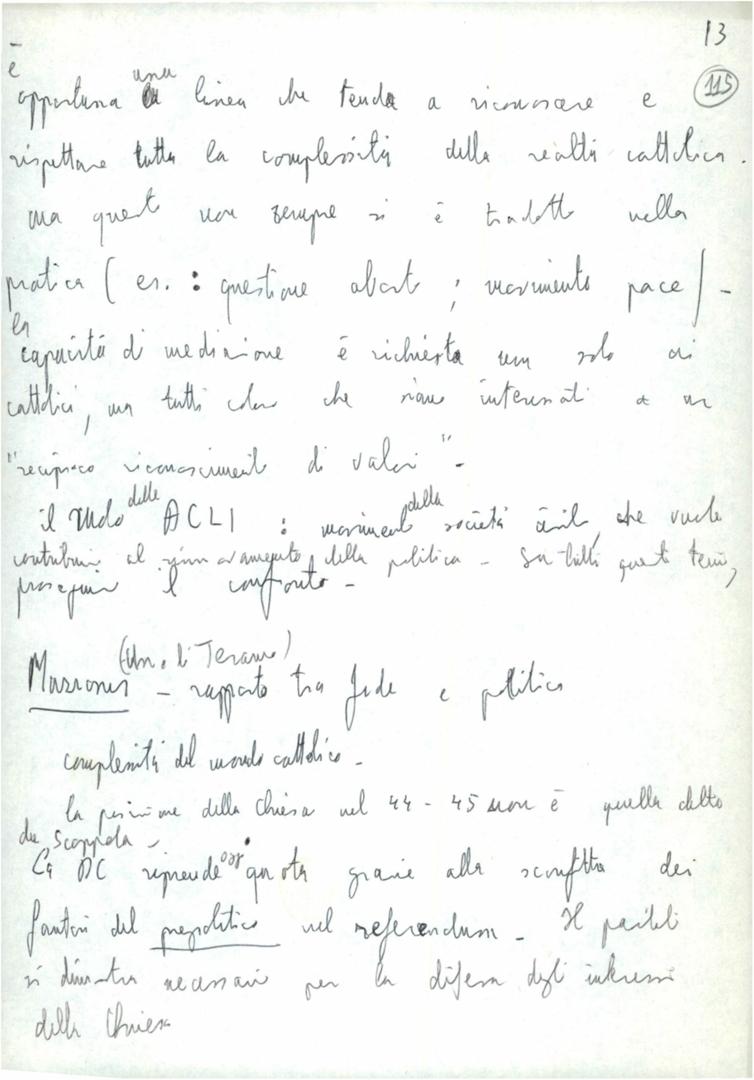 13
115
è
opportuna una linea che tenda a riconoscere e
rispettare tutta la complessità della realtà cattolica.
ma questo non sempre si è tradotto nella
pratica (es. : questione aborto ; movimento pace) -
la
capacità di mediazione è richiesta non solo ai
cattolici, ma tutti coloro che siano interessati a un
"reciproco riconoscimento di valori" -
il ruolo delle ACLI : movimento della società civile, che vuole
contribuire al rinnovamento della politica - Su tutti questi temi,
proseguire il confronto -
(Un. di Teramo)
- rapporto tra fede e politica
complessità del mondo cattolico -
la posizione della Chiesa nel 44-45 non è quella detta
da Scoppola -
La DC riprende oggi quota grazie alla sconfitta dei
fautori del prepolitico nel referendum - Il partito
si dimostra necessario per la difesa degli interessi
della Chiesa